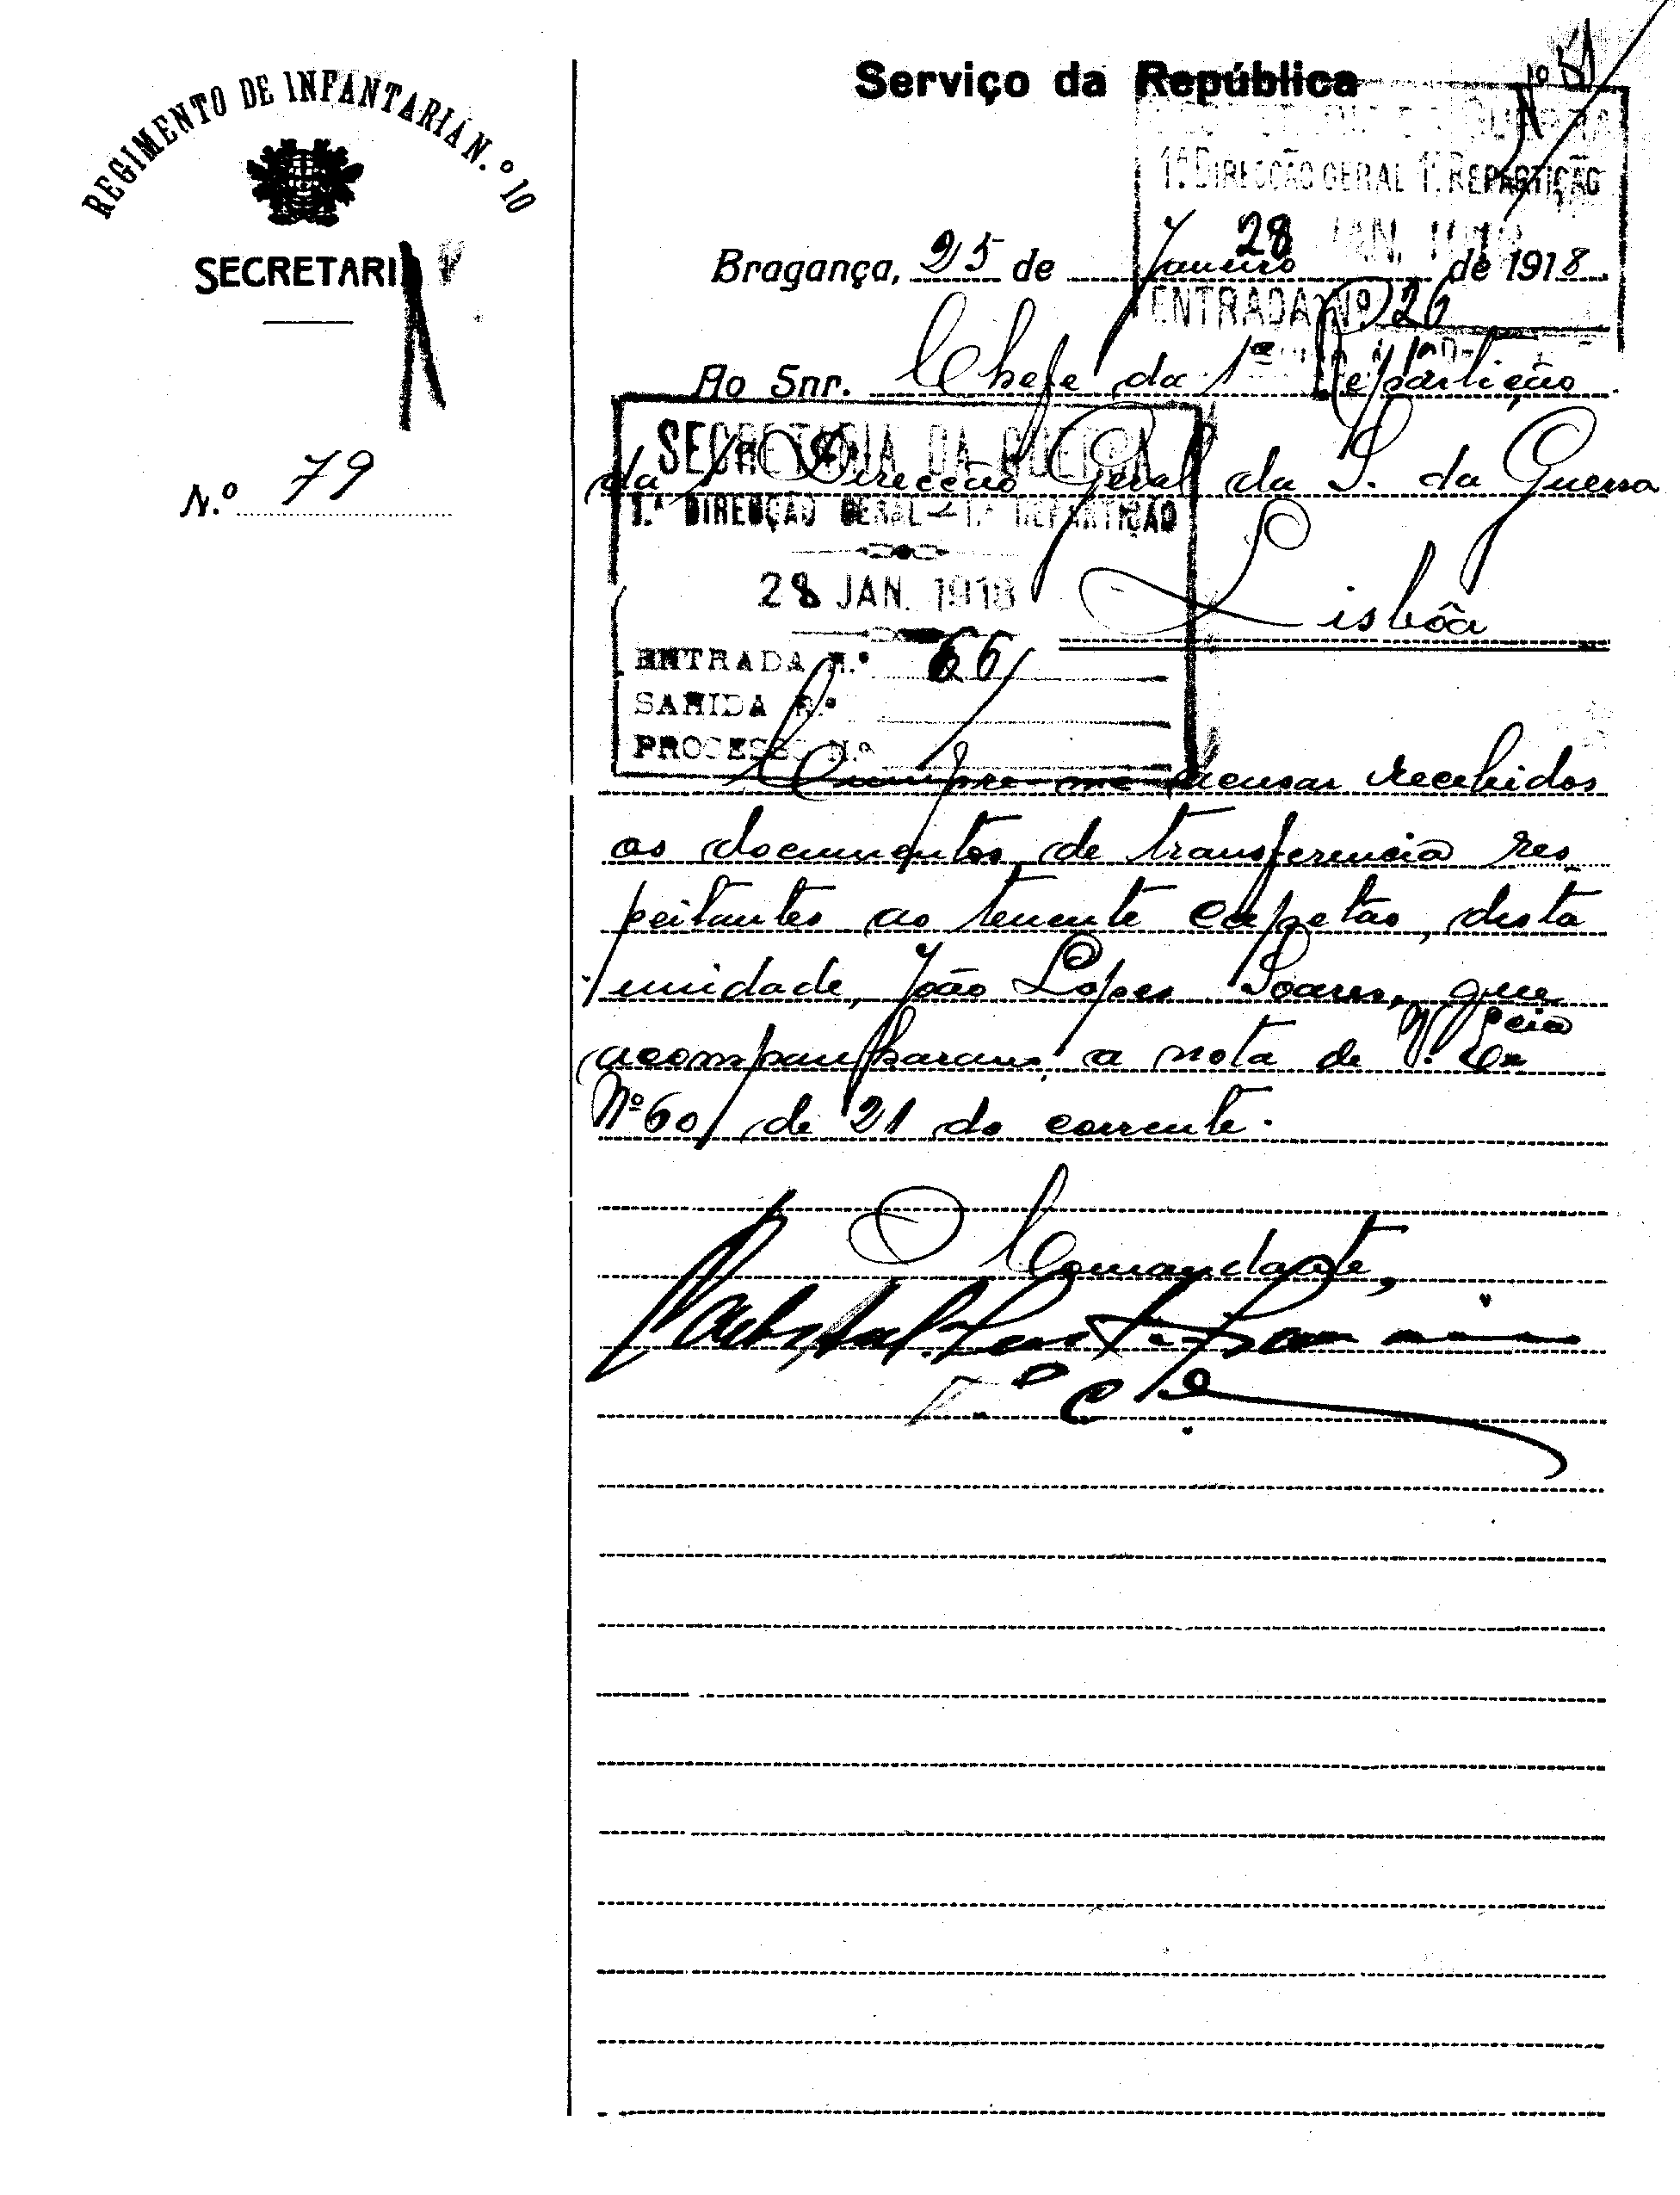 REGIMENTO DE INFANTARIA N.º 10
SECRETARIA
N.º 79
Serviço da República
Nº 51
1.ª DIRECÇÃO GERAL 1.ª REPARTIÇÃO
28 JAN. 1918
ENTRADA Nº 26
Bragança, 25 de Janeiro de 1918.
Ao Snr. Chefe da 1ª Repartição
da 1ª Direcção Geral da S. da Guerra
Lisbôa
SECRETARIA DA GUERRA
1.ª DIRECÇÃO GERAL – 1.ª REPARTIÇÃO
28 JAN. 1918
ENTRADA N.º 66
SAHIDA N.º
PROCESSO N.º
Cumpre-me acusar recebidos
os documentos de transferencia res
peitantes ao tenente capelão, desta
unidade, João Lopes Soares, que
acompanharam a nota de V. Exª
Nº 60 de 21 do corrente.
O Comandante,
T. C.